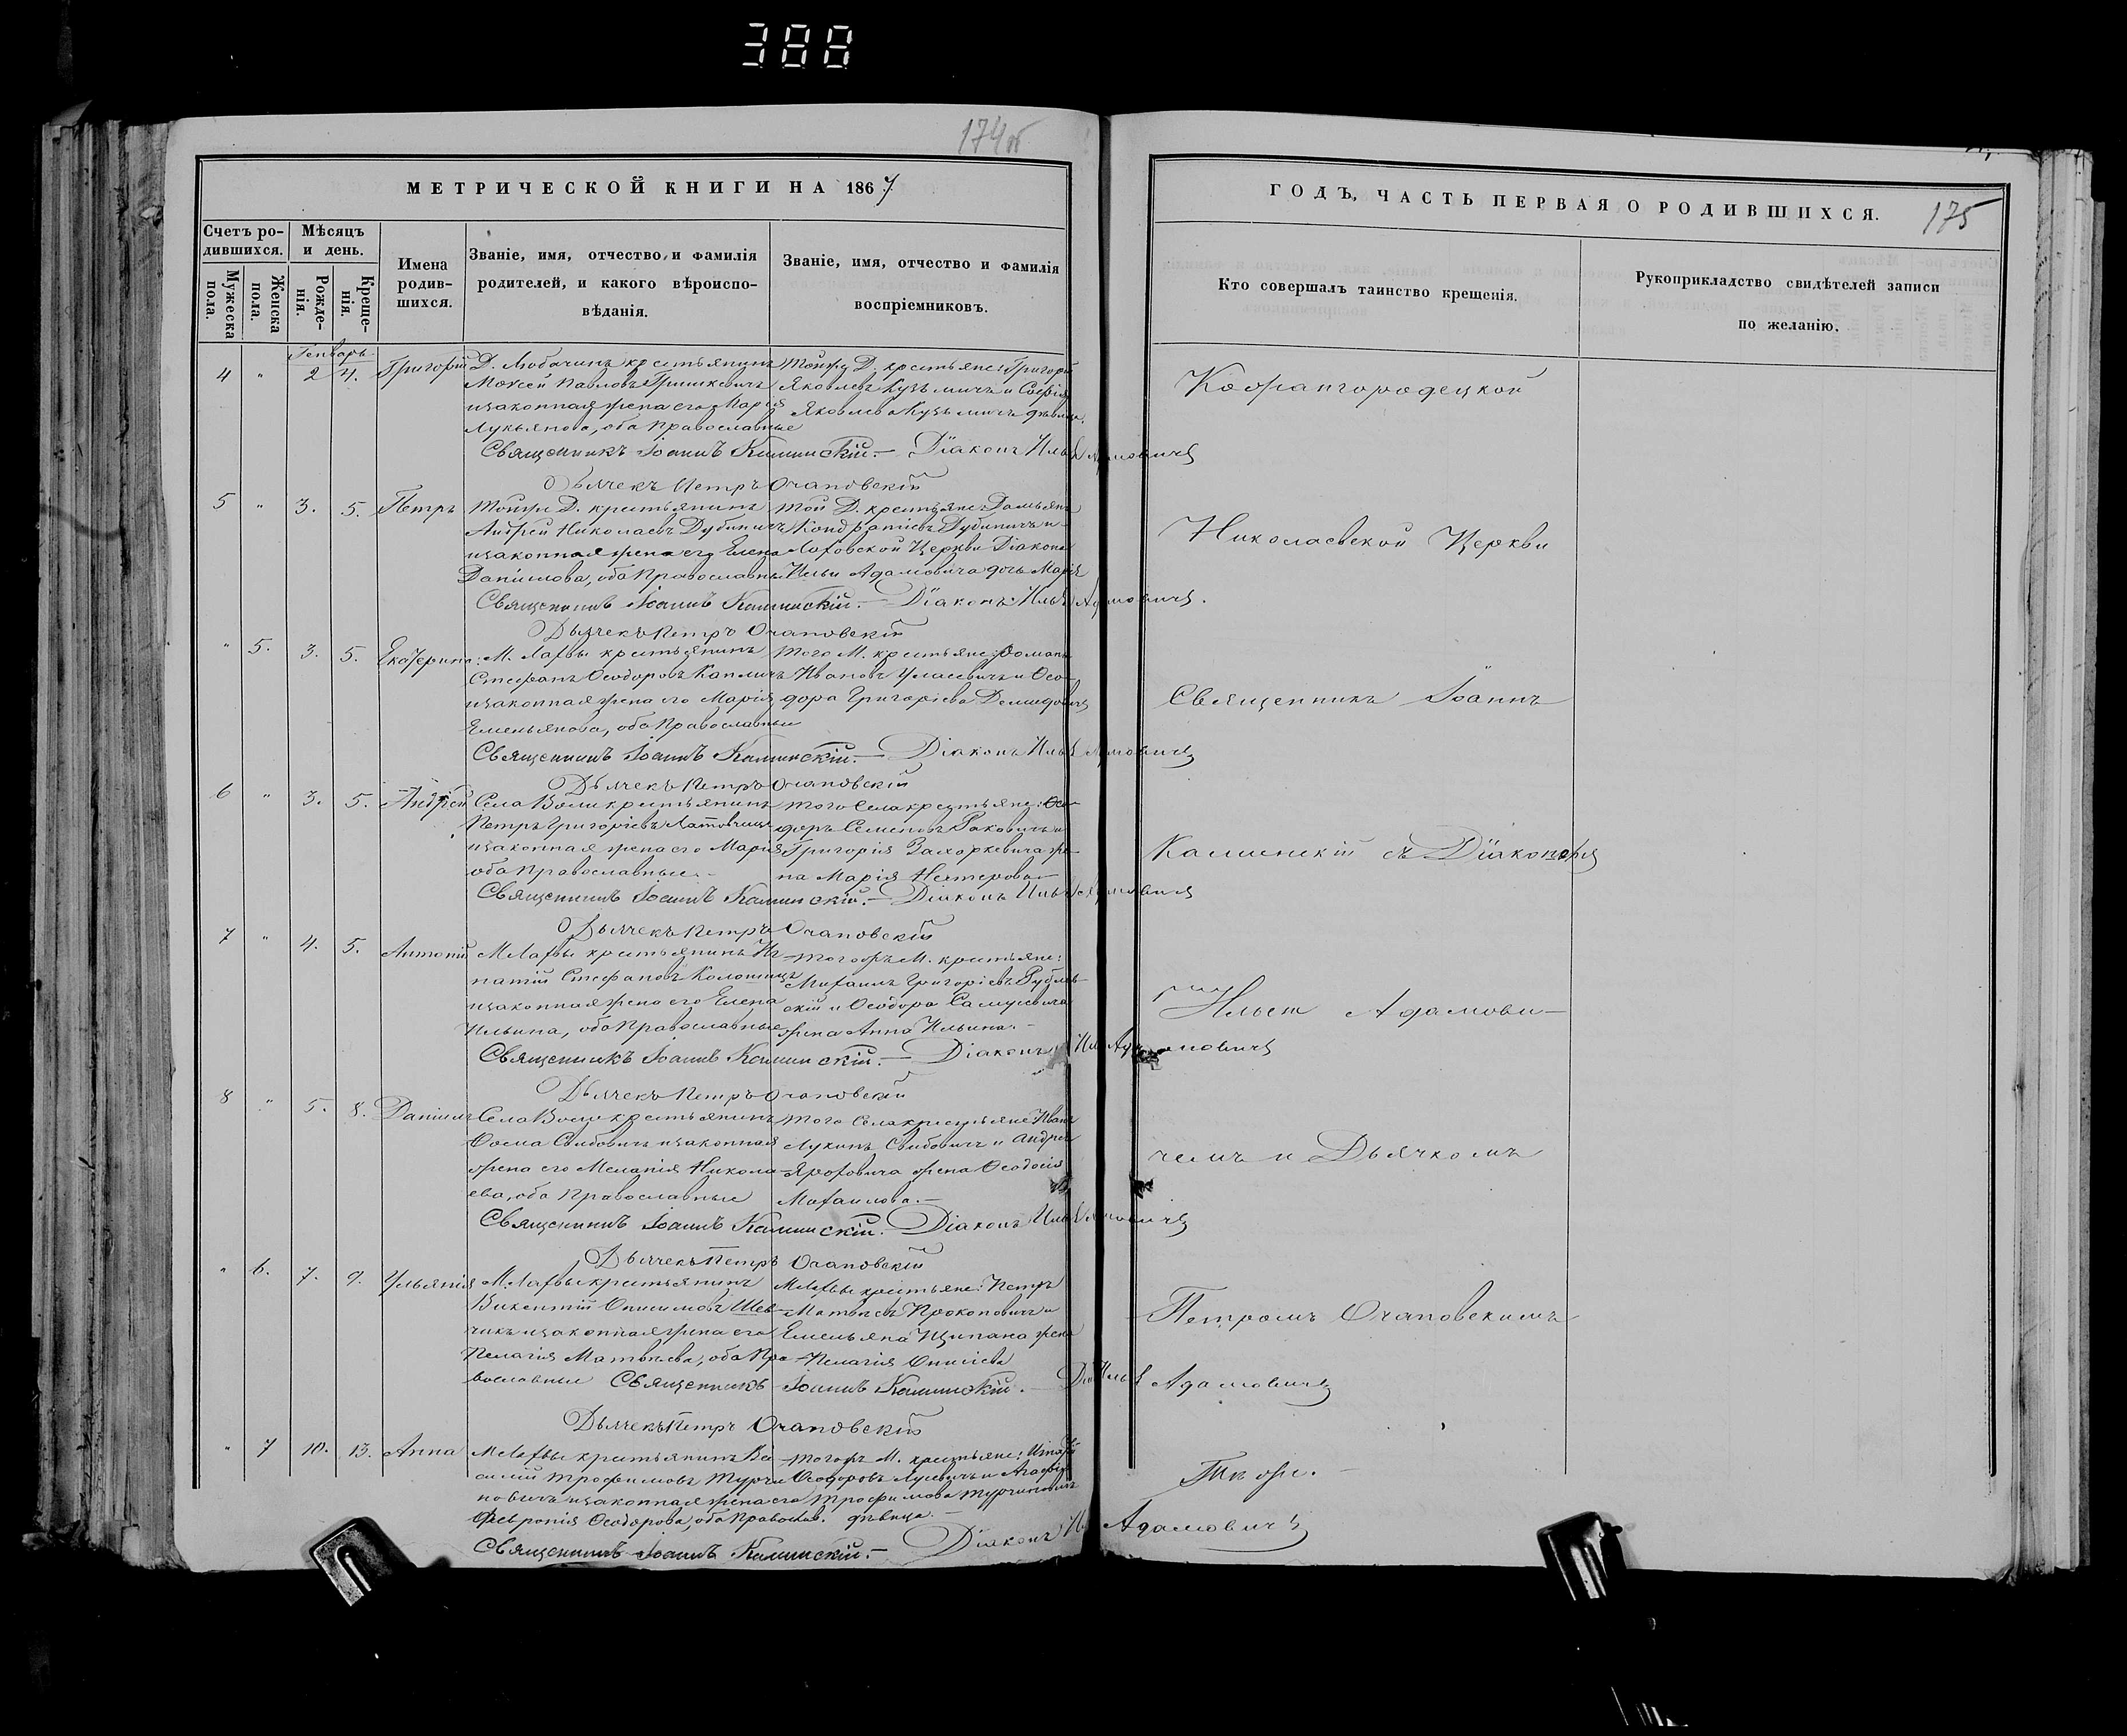 388
174об
МЕТРИЧЕСКОЙ КНИГИ НА 1867
Счетъ ро-
дившихся.
Мужеска
пола.
Женска
пола.
Мѣсяцъ
и день.
Рожде-
нія.
Креще-
нія.
Имена
родив-
шихся.
Званіе, имя, отчество, и фамилія
родителей, и какого вѣроиспо-
вѣданія.
Званіе, имя, отчество и фамилія
воспріемниковъ.
Генварь
4 " 2 4. Григорій
Д. Любачинъ крестьянинъ
Моисей Павловъ Гришкевичъ
и законная жена его Марія
Лукьянова, оба Православные
Тойже Д. крестьяне: Григорій
Яковлевъ Кузьмичъ и Софія
Яковлева Кузьмичъ дѣвица.
Священникъ Іоаннъ Каминскій. — Діаконъ Илья Адамовичъ
Дьячекъ Петръ Очаповскій
5 " 3. 5. Петръ
Тойже Д. крестьянинъ
Андрей Николаевъ Дубиничъ
и законная жена его Елена
Даніилова, оба Православные
Той Д. крестьяне: Дамьянъ
Кондратіевъ Дубиничъ и
Церкви Діакона
Ильи Адамовича дочь Марія
Священникъ Іоаннъ Каминскій. — Діаконъ Илья Адамовичъ.
Дьячекъ Петръ Очаповскій
" 5. 3. 5. Екатерина
М. Лахвы крестьянинъ
Стефанъ Ѳеодоровъ Капличъ
и законная жена его Марія
Емельянова, оба Православные
Того М. крестьяне: Романъ
Ивановъ и Ѳео-
дора Григоріева Демидовичъ
Священникъ Іоаннъ Каминскій. — Діаконъ Илья Адамовичъ
Дьячекъ Петръ Очаповскій
6 " 3. 5. Андрей
Села Воли крестьянинъ
Петръ Григоріевъ
и законная жена его Марія
оба Православные. —
Того Села крестьяне: Ѳео-
доръ Семеновъ Раковичъ и
Григорія Захоркевича же-
на Марія Нестерова —
Священникъ Іоаннъ Каминскій. — Діаконъ Илья Адамовичъ
Дьячекъ Петръ Очаповскій
7 " 4. 5. Антоній
М. Лахвы крестьянинъ Иг-
натій Стефановъ
и законная жена его Елена
Ильина, оба Православные
Тогожъ М. крестьяне:
Михаилъ Григоріевъ
скій и Ѳеодора Самуевича
жена Анна Ильина. —
Священникъ Іоаннъ Каминскій. — Діаконъ Илья Адамовичъ
Дьячекъ Петръ Очаповскій
8 " 5. 8. Даніилъ
Села Воли крестьянинъ
Ѳома Свибовичъ и законная
жена его Меланія Никола-
ева, оба Православные
Того Села крестьяне: Иванъ
Лукинъ Свибовичъ и Андрея
жена Ѳеодосія
Михаилова. —
Священникъ Іоаннъ Каминскій. Діаконъ Илья Адамовичъ
Дьячекъ Петръ Очаповскій
" 6. 7. 9. Ульянія
М. Лахвы крестьянинъ
Викентій Онисимовъ Шев-
чикъ и законная жена его
Пелагія Матвѣева, оба Пра-
вославные
М. Лахвы крестьяне: Петръ
Матвѣевъ Прокоповичъ и
Емельяна Щипана жена
Пелагія
Священникъ Іоаннъ Каминскій. — Діа. Илья Адамовичъ
Дьячекъ Петръ Очаповскій
" 7 10. 13. Анна
М. Лахвы крестьянинъ Ва-
силій Трофимовъ Турчи-
новичъ и законная жена его
Февронія Ѳеодорова, оба Православ.
Тогожъ М. крестьяне: Игнатій
Ѳеодоровъ и Агафія
Трофимова Турчиновичъ
дѣвица. —
Священникъ Іоаннъ Каминскій. — Діаконъ Илья Адамовичъ
ГОДЪ, ЧАСТЬ ПЕРВАЯ О РОДИВШИХСЯ.
175
Кто совершалъ таинство крещенія.
Рукоприкладство свидѣтелей записи
по желанію.
Кожангородецкой
Николаевской Церкви
Священникъ Іоаннъ
Каминскій съ Діакономъ
Ильею Адамови-
чемъ и Дьячкомъ
Петромъ Очаповскимъ
Тѣ же. —